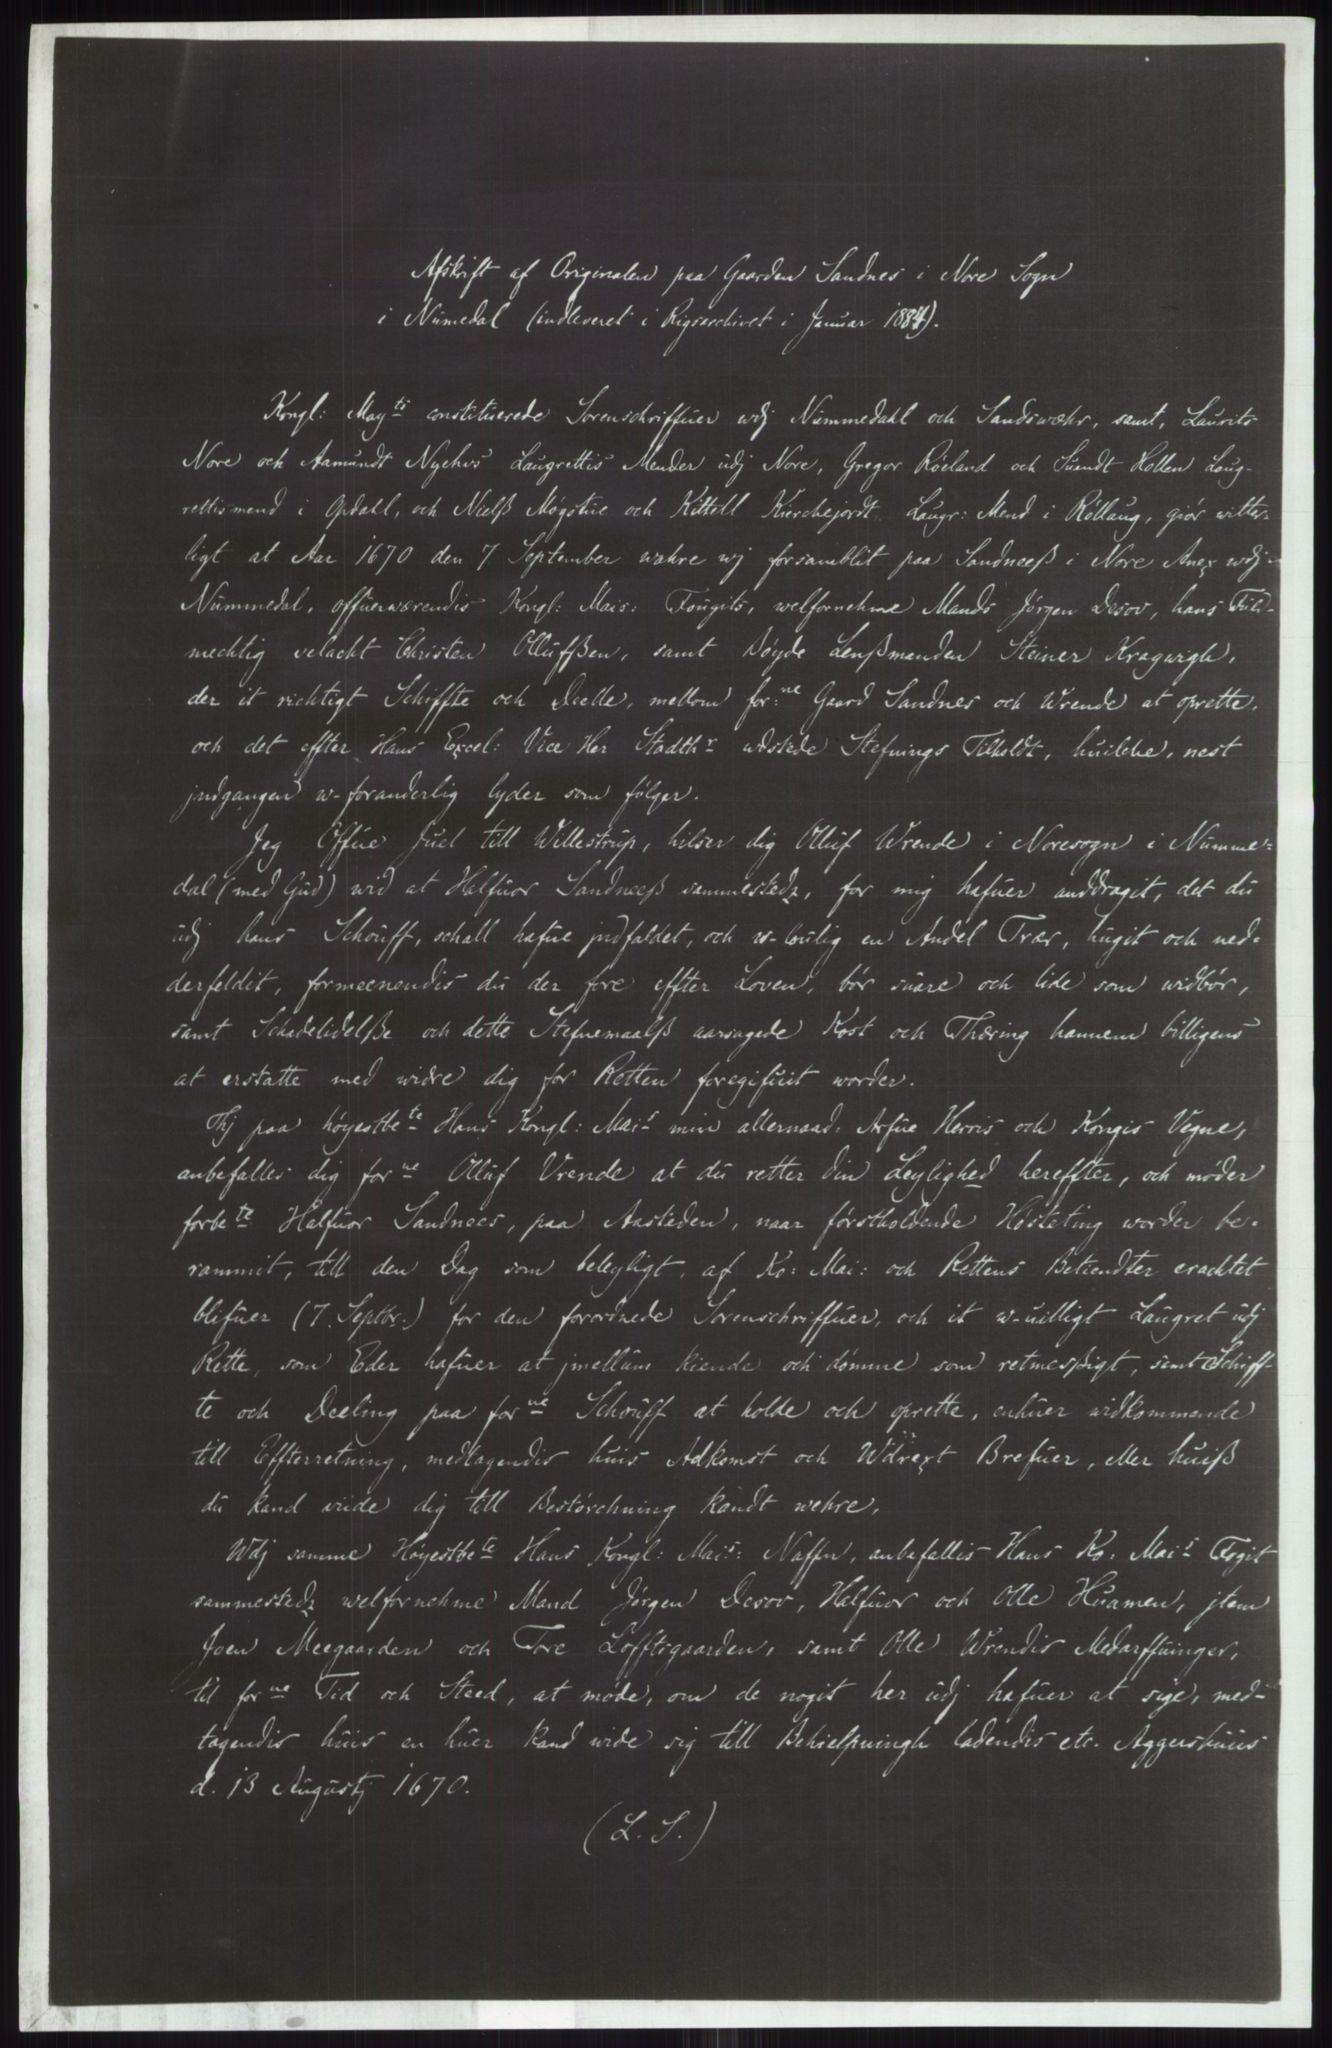 Afskrift af Originalen paa Gaarden Sandnes i Nore Sogn
i Numedal (indleveret i Rigsarchivet i Januar 1884).
Kongl: Mayts constituerede Sorenschriffuer udj Nummedahl och Sandswæhr, samt, Laurits
Nore och Aamundt Nyehus Laugrettis Mender udj Nore, Gregor Röeland och Suendt Hollen Laug-
rettismend i Opdahl, och Nielß Mogstue och Kittell Kierchejordt Laugr: Mend i Röllaug, giör witter-
ligt at Aar 1670 den 7 September wahre wj forsamblit paa Sandneeß i Nore Anex wdj
Nummedal, offuerwærendis Kongl: Mais: Fougits, welfornehme Mands Jörgen Desov, hans Fuld-
mechtig velacht Christen Ollufßen, samt Böyde Lenßmanden Steiner Kragwigh,
der it richtigt Schiffte och Deelle, mellom for:ne Gaard Sandnes och Wrende at oprette,
och det effter Hans Excel: Vice Her Stadthr udstede Stefnings Tilholdt, huilche, nest
jndgangen w-foranderlig lyder som fölger.
Jeg Offue Juel till Willestrup, hilser dig Olluf Wrende i Noresogn i Numme-
dal (med Gud) wid at Halfuor Sandneeß sammestedz, for mig hafuer anddragit, det du
udj hans Schouff, schall hafue jndfaldet, och w-loulig en Andel Trær, hugit och ned-
derfeldit, formeenendis du der fore effter Loven, bör suare och lide som widbör,
samt Schadelidelße och dette Stefnemaalß aarsagede Kost och Thæring hannem billigens
at erstatte med widre dig for Retten foregifuit worder.
Thj paa höyestbete Hans Kongl: Mais min allernaad: Arfue Herris och Kongis Vegne,
anbefalles dig forne Olluf Vrende at du retter din Leylighed hereffter, och möder
forbete Halfuor Sandnees, paa Aasteden, naar förstholdende Hösteting worder be-
rammit, till den Dag som beleyligt, af Ko: Mai: och Rettens Betiendter erachtet
blifuer (7. Septbr.) for den forordnede Sorenschriffuer, och it w-uilligt Laugret udj
Rette, som Eder hafuer at jmellum kiende och dömme som retmesßigt, samt Schiff-
te och Deeling paa forne Schouff at holde och oprette, enhuer widkommende
till Effterretning, medtagendis huis Adkomst och Brefuer, eller huiß
du kand wiide dig till Bestörchning kandt wehre.
Wdj samme Höyestbete Hans Kongl: Mais: Naffn, anbefallis Hans Ko: Mais Fogit
sammestedz welfornehme Mand Jörgen Desov, Halfuor och Olle Huamen, jtem
Joen Meegaarden och Tore Lofftsgaarden, samt Olle Wrendis Medarffuinger,
til forne Tid och Steed, at möde, om de nogit her udj hafuer at sige, med-
tagendis huis en huer kand wide sig till Behielpningh ladendis etc. Aggershuus
d. 13 Augustj 1670.
(L. S.)